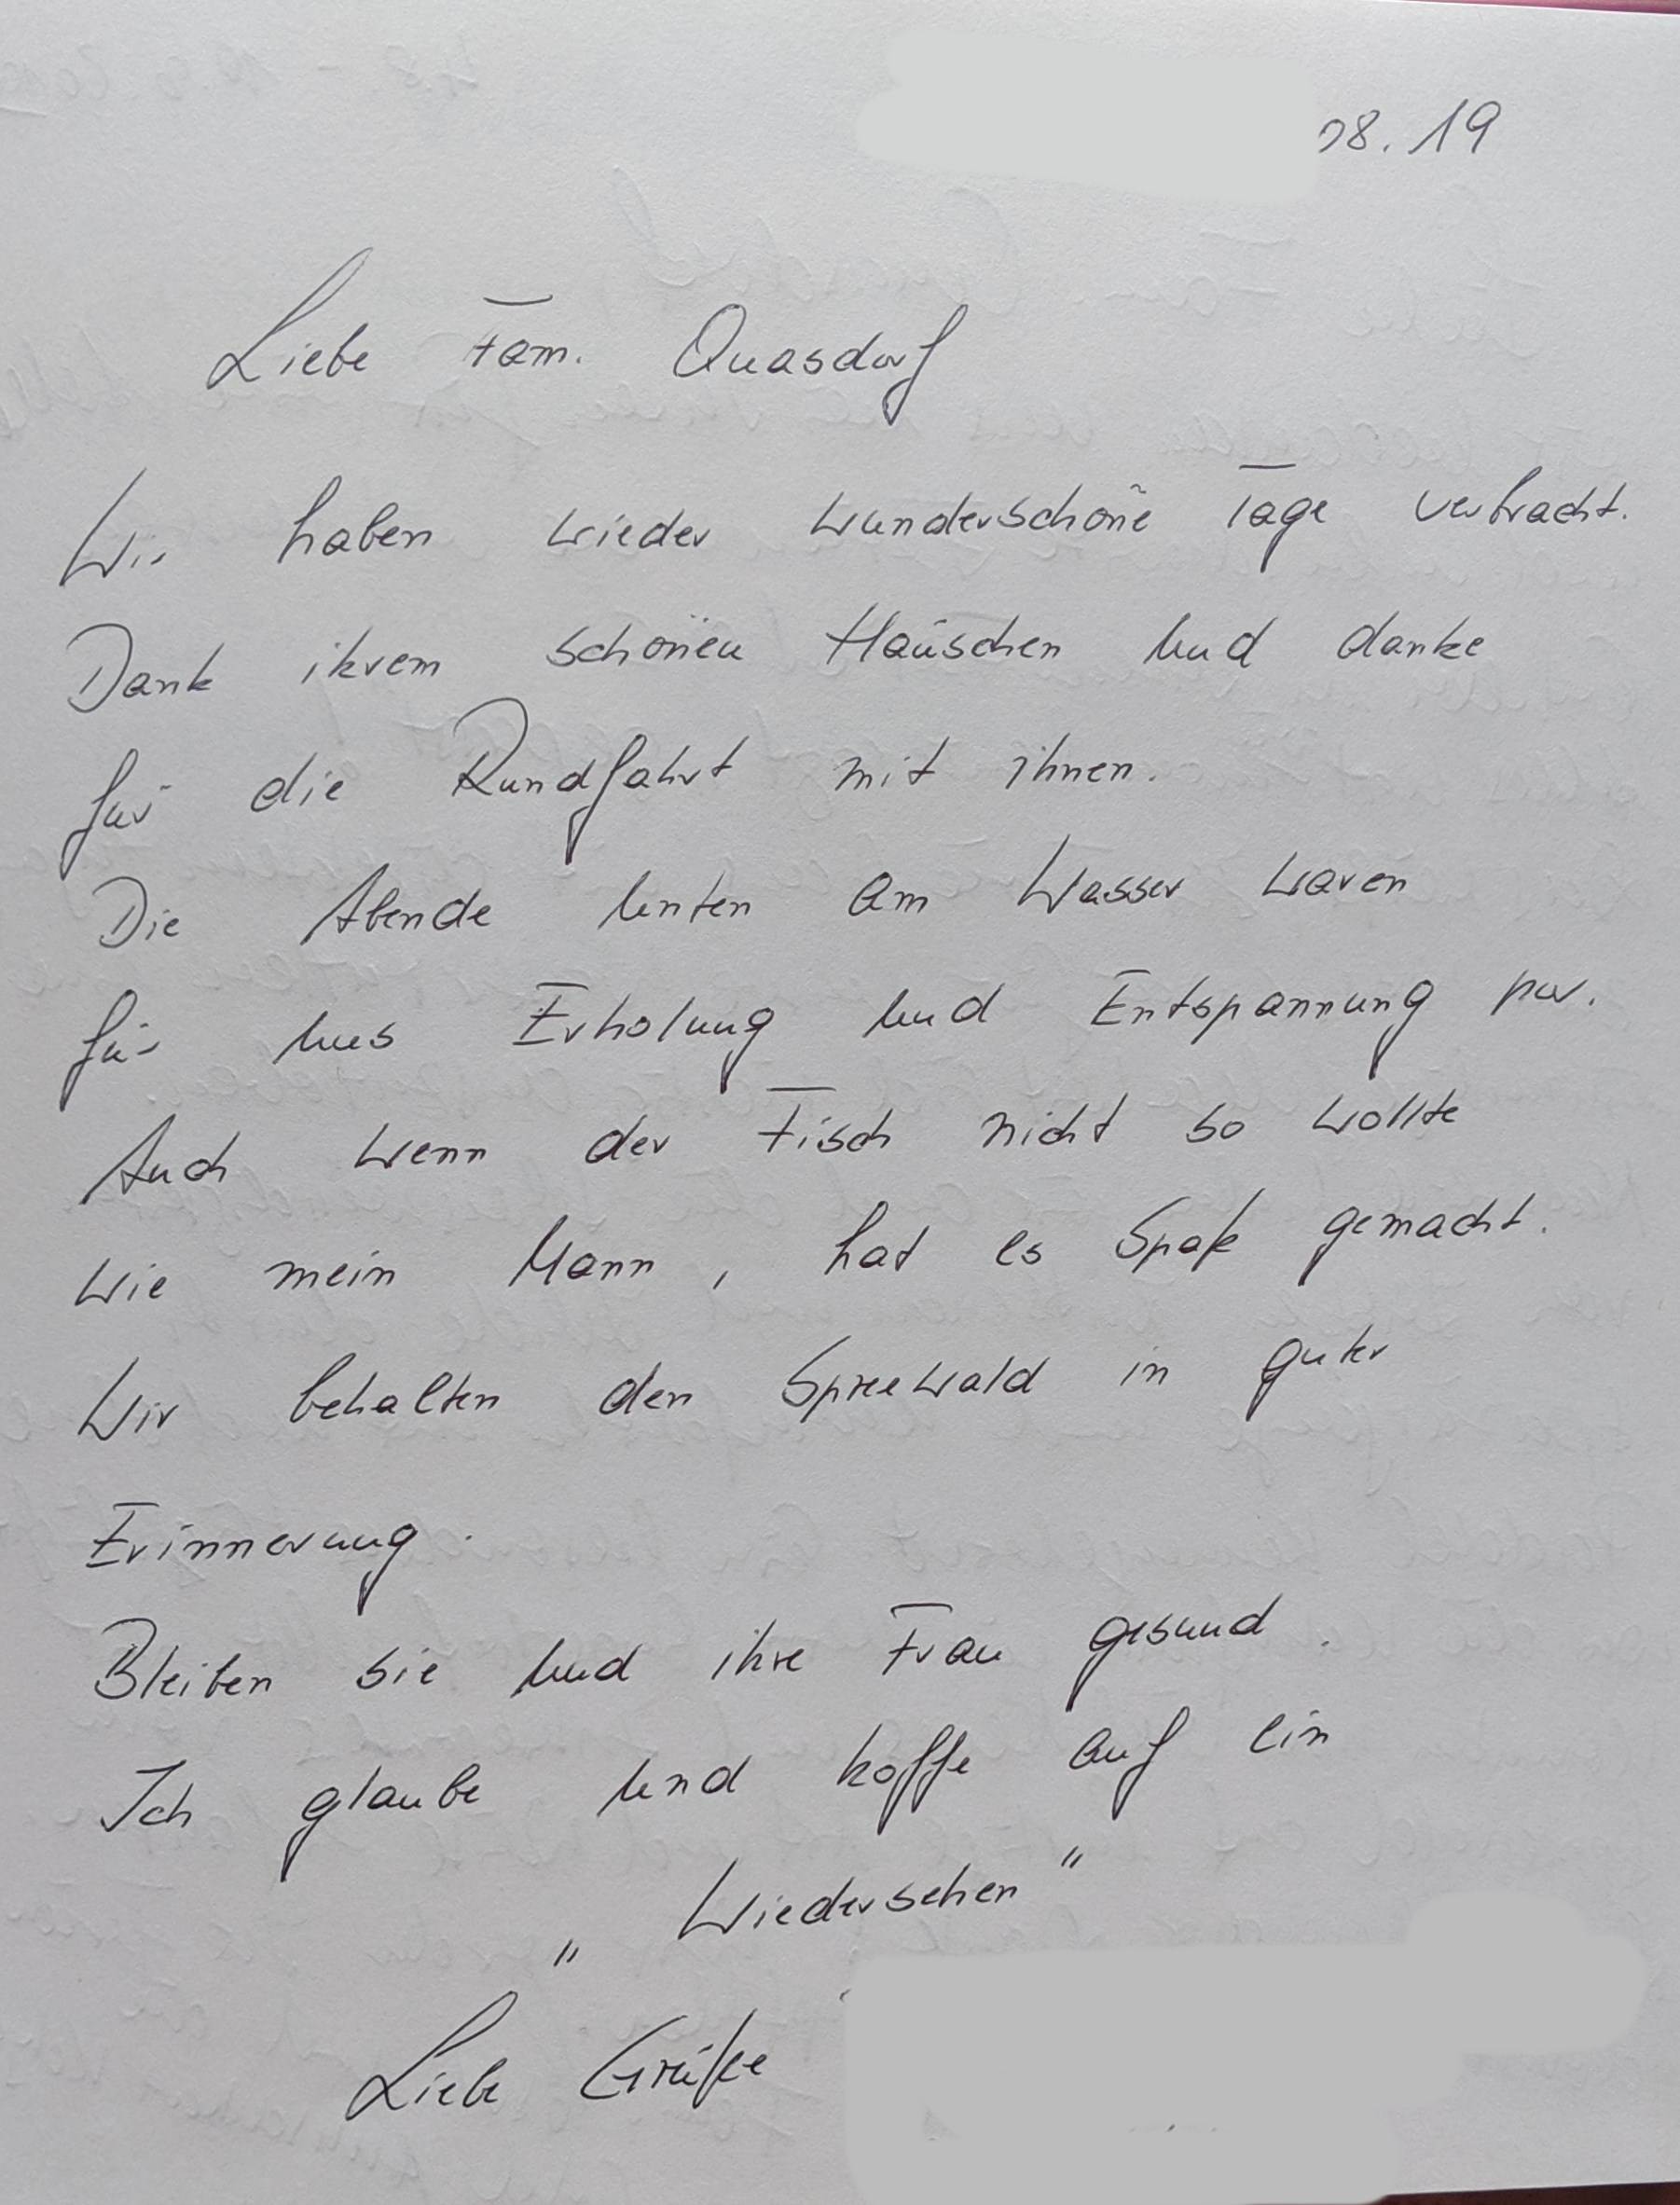 08.19
Liebe Fam. Quasdorf
Wir haben wieder wunderschöne Tage verbracht.
Dank ihrem schönen Häuschen und danke
für die Rundfahrt mit ihnen.
Die Abende unten am Wasser waren
für uns Erholung und Entspannung pur.
Auch wenn der Fisch nicht so wollte
wie mein Mann, hat es Spaß gemacht.
Wir behalten den Spreewald in guter
Erinnerung.
Bleiben sie und ihre Frau gesund.
Ich glaube und hoffe auf ein
„Wiedersehen"
Liebe Grüße